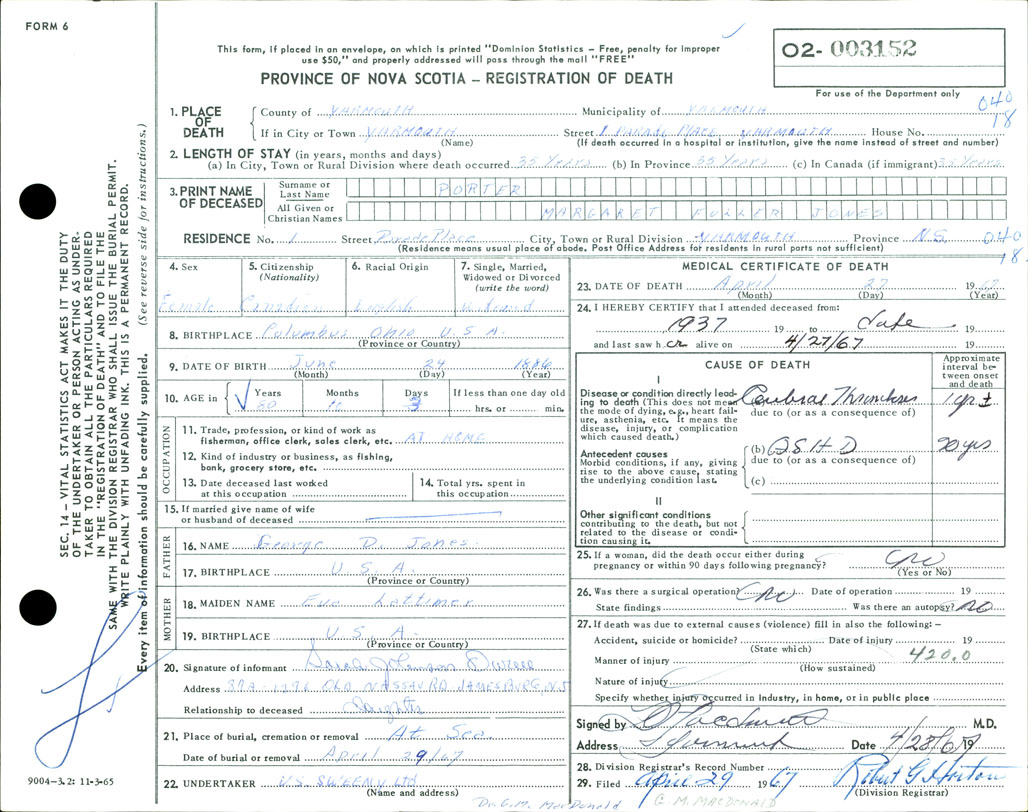 FORM 6
This form, if placed in an envelope, on which is printed "Dominion Statistics – Free, penalty for improper
use $50," and properly addressed will pass through the mail "FREE"
PROVINCE OF NOVA SCOTIA – REGISTRATION OF DEATH
02- 003152
For use of the Department only
040
18
1. PLACE OF DEATH
County of YARMOUTH Municipality of YARMOUTH
If in City or Town YARMOUTH Street 1 PARADE PLACE YARMOUTH House No.
(Name) (If death occurred in a hospital or institution, give the name instead of street and number)
2. LENGTH OF STAY (in years, months and days)
(a) In City, Town or Rural Division where death occurred 35 Years (b) In Province 35 Years (c) In Canada (if immigrant) 35 Years
3. PRINT NAME OF DECEASED
Surname or Last Name PORTER
All Given or Christian Names MARGARET FULLER JONES
RESIDENCE No. 1 Street Parade Place City, Town or Rural Division YARMOUTH Province N.S. 040
(Residence means usual place of abode. Post Office Address for residents in rural parts not sufficient) 18
4. Sex Female
5. Citizenship (Nationality) Canadian
6. Racial Origin English
7. Single, Married, Widowed or Divorced (write the word) Widowed
8. BIRTHPLACE Columbus Ohio U.S.A.
(Province or Country)
9. DATE OF BIRTH June 24 1886
(Month) (Day) (Year)
10. AGE in Years 80 Months 10 Days 3 If less than one day old
hrs. or min.
OCCUPATION
11. Trade, profession, or kind of work as
fisherman, office clerk, sales clerk, etc. AT HOME
12. Kind of industry or business, as fishing,
bank, grocery store, etc.
13. Date deceased last worked
at this occupation
14. Total yrs. spent in
this occupation
15. If married give name of wife
or husband of deceased
FATHER
16. NAME George D. Jones
17. BIRTHPLACE U.S.A.
(Province or Country)
MOTHER
18. MAIDEN NAME Eve Lattimer
19. BIRTHPLACE U.S.A.
(Province or Country)
20. Signature of informant Sarah Johnson
Address OLD NASSAU RD JAMESBURG, N.J
Relationship to deceased Daughter
21. Place of burial, cremation or removal At Sea
Date of burial or removal April 29/67
22. UNDERTAKER V.S. SWEENY LTD
(Name and address)
MEDICAL CERTIFICATE OF DEATH
23. DATE OF DEATH April 27 1967
(Month) (Day) (Year)
24. I HEREBY CERTIFY that I attended deceased from:
1937 19 to Date 19
and last saw her alive on 4/27/67 19
CAUSE OF DEATH
Approximate interval between onset and death
I
Disease or condition directly leading to death (This does not mean the mode of dying, e.g., heart failure, asthenia, etc. It means the disease, injury, or complication which caused death.)
Cerebral Thrombosis 1 yr ±
due to (or as a consequence of)
Antecedent causes
Morbid conditions, if any, giving rise to the above cause, stating the underlying condition last.
(b) A S H D 20 yrs
due to (or as a consequence of)
(c)
II
Other significant conditions
contributing to the death, but not related to the disease or condition causing it.
25. If a woman, did the death occur either during
pregnancy or within 90 days following pregnancy? No
(Yes or No)
26. Was there a surgical operation? No Date of operation 19
State findings Was there an autopsy? No
27. If death was due to external causes (violence) fill in also the following: –
Accident, suicide or homicide? Date of injury 19
(State which)
420.0
Manner of injury
(How sustained)
Nature of injury
Specify whether injury occurred in industry, in home, or in public place
Signed by M.D.
Address Yarmouth Date 4/28/67 19
28. Division Registrar's Record Number
29. Filed April 29 1967 Robert G Horton
(Division Registrar)
Dr. G.M. MacDonald
G. M. MACDONALD
SEC. 14 – VITAL STATISTICS ACT MAKES IT THE DUTY
OF THE UNDERTAKER OR PERSON ACTING AS UNDER-
TAKER TO OBTAIN ALL THE PARTICULARS REQUIRED
IN THE "REGISTRATION OF DEATH" AND TO FILE THE
SAME WITH THE DIVISION REGISTRAR WHO SHALL ISSUE THE BURIAL PERMIT.
WRITE PLAINLY WITH UNFADING INK. THIS IS A PERMANENT RECORD.
Every item of information should be carefully supplied. (See reverse side for instructions.)
9004-3.2: 11-3-65